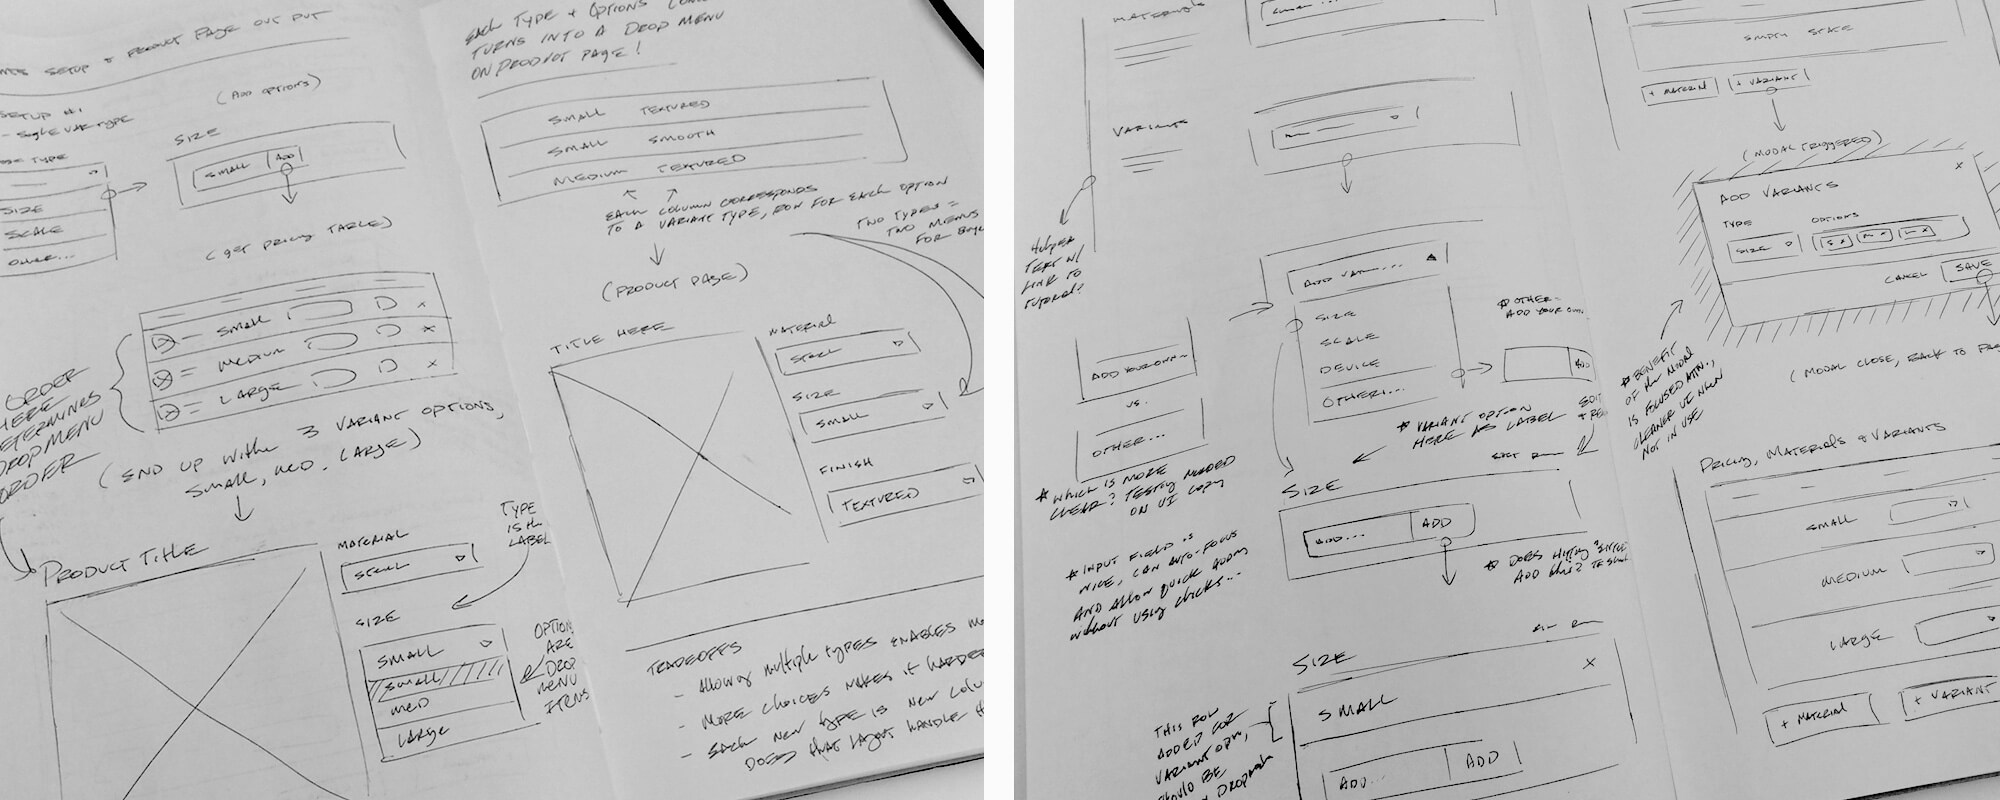 SETUP + PRODUCT PAGE OUT PUT
SETUP #1
- Single VAR TYPE
TYPE
SIZE
SCALE
OTHER...
(ADD OPTIONS)
SIZE
SMALL ADD
(GET PRICING TABLE)
SMALL
MEDIUM
LARGE
ORDER
HERE
DETERMINES
DROPMENU
ORDER
(END UP WITH 3 VARIANT OPTIONS,
SMALL, MED, LARGE)
PRODUCT TITLE
MATERIAL
STEEL
SIZE
SMALL
SMALL
MED
LARGE
TYPE
IS THE
LABEL
OPTIONS
ARE
DROP
MENU
ITEMS
EACH TYPE + OPTIONS
TURNS INTO A DROP MENU
ON PRODUCT PAGE!
SMALL TEXTURED
SMALL SMOOTH
MEDIUM TEXTURED
EACH COLUMN CORRESPONDS
TO A VARIANT TYPE, ROW FOR EACH OPTION
TWO TYPES =
TWO MENUS
FOR
(PRODUCT PAGE)
TITLE HERE
MATERIAL
STEEL
SIZE
SMALL
FINISH
TEXTURED
TRADEOFFS
- Allowing multiple types ENABLES
- MORE CHOICES MAKES IT HARDER
- EACH NEW TYPE IS NEW
DOES THAT LAYOUT HANDLE
MATERIALS
VARIANTS
HELPER
TEXT W/
LINK TO
TUTORIAL?
ADD YOUR OWN...
VS.
OTHER...
* WHICH IS MORE
CLEAR? TESTING NEEDED
ON UI COPY
ADD VARI...
SIZE
SCALE
DEVICE
OTHER...
* OTHER -
ADD YOUR OWN
ADD
* VARIANT OPTION
HERE AS LABEL
SIZE
ADD... ADD
* INPUT FIELD IS
NICE, CAN AUTO-FOCUS
AND ALLOW QUICK ADDING
WITHOUT USING CLICKS...
* DOES HITTING "ENTER
ADD THIS?
SIZE
SMALL X
ADD... ADD
THIS ROW
ADDED FOR
VARIANT OPTN,
SHOULD BE
EMPTY STATE
+ MATERIAL + VARIANT
(MODAL TRIGGERED)
ADD VARIANTS X
TYPE OPTIONS
SIZE S X M X L X
CANCEL SAVE
* BENEFIT
OF THE MODAL
IS FOCUSED ATTN.,
CLEANER UI WHEN
NOT IN USE
(MODAL CLOSE, BACK TO
PRICING, MATERIALS & VARIANTS
SMALL
MEDIUM
LARGE
+ MATERIAL + VARIANT